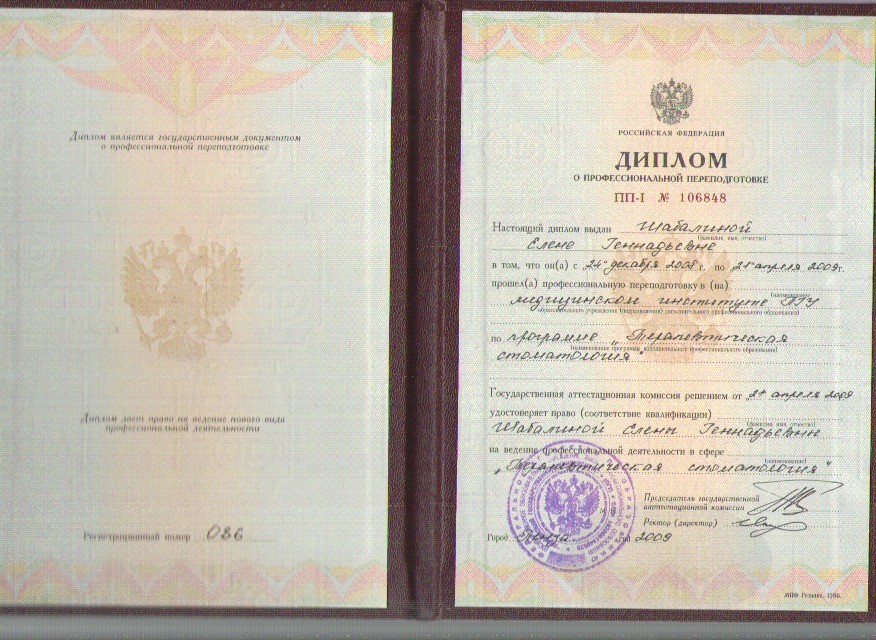 Диплом является государственным документом
о профессиональной переподготовке
Диплом дает право на ведение нового вида
профессиональной деятельности
Регистрационный номер 086
РОССИЙСКАЯ ФЕДЕРАЦИЯ
ДИПЛОМ
О ПРОФЕССИОНАЛЬНОЙ ПЕРЕПОДГОТОВКЕ
ПП-I № 106848
Настоящий диплом выдан Шабалиной
(фамилия, имя, отчество)
Елене Геннадьевне
в том, что он(а) с „24" декабря 2008 г. по „21" апреля 2009 г.
прошел(а) профессиональную переподготовку в (на)
(наименование
медицинском институте ПГУ
образовательного учреждения (подразделения) дополнительного профессионального образования)
по программе „Терапевтическая
(наименование программы дополнительного профессионального образования)
стоматология"
Государственная аттестационная комиссия решением от апреля 2009
удостоверяет право (соответствие квалификации)
(фамилия, имя, отчество)
Шабалиной Елены Геннадьевны
на ведение профессиональной деятельности в сфере
(наименование)
„Терапевтическая стоматология"
Председатель государственной
аттестационной комиссии
Ректор (директор)
Город Пенза год 2009
МПФ Гознака. 1996.